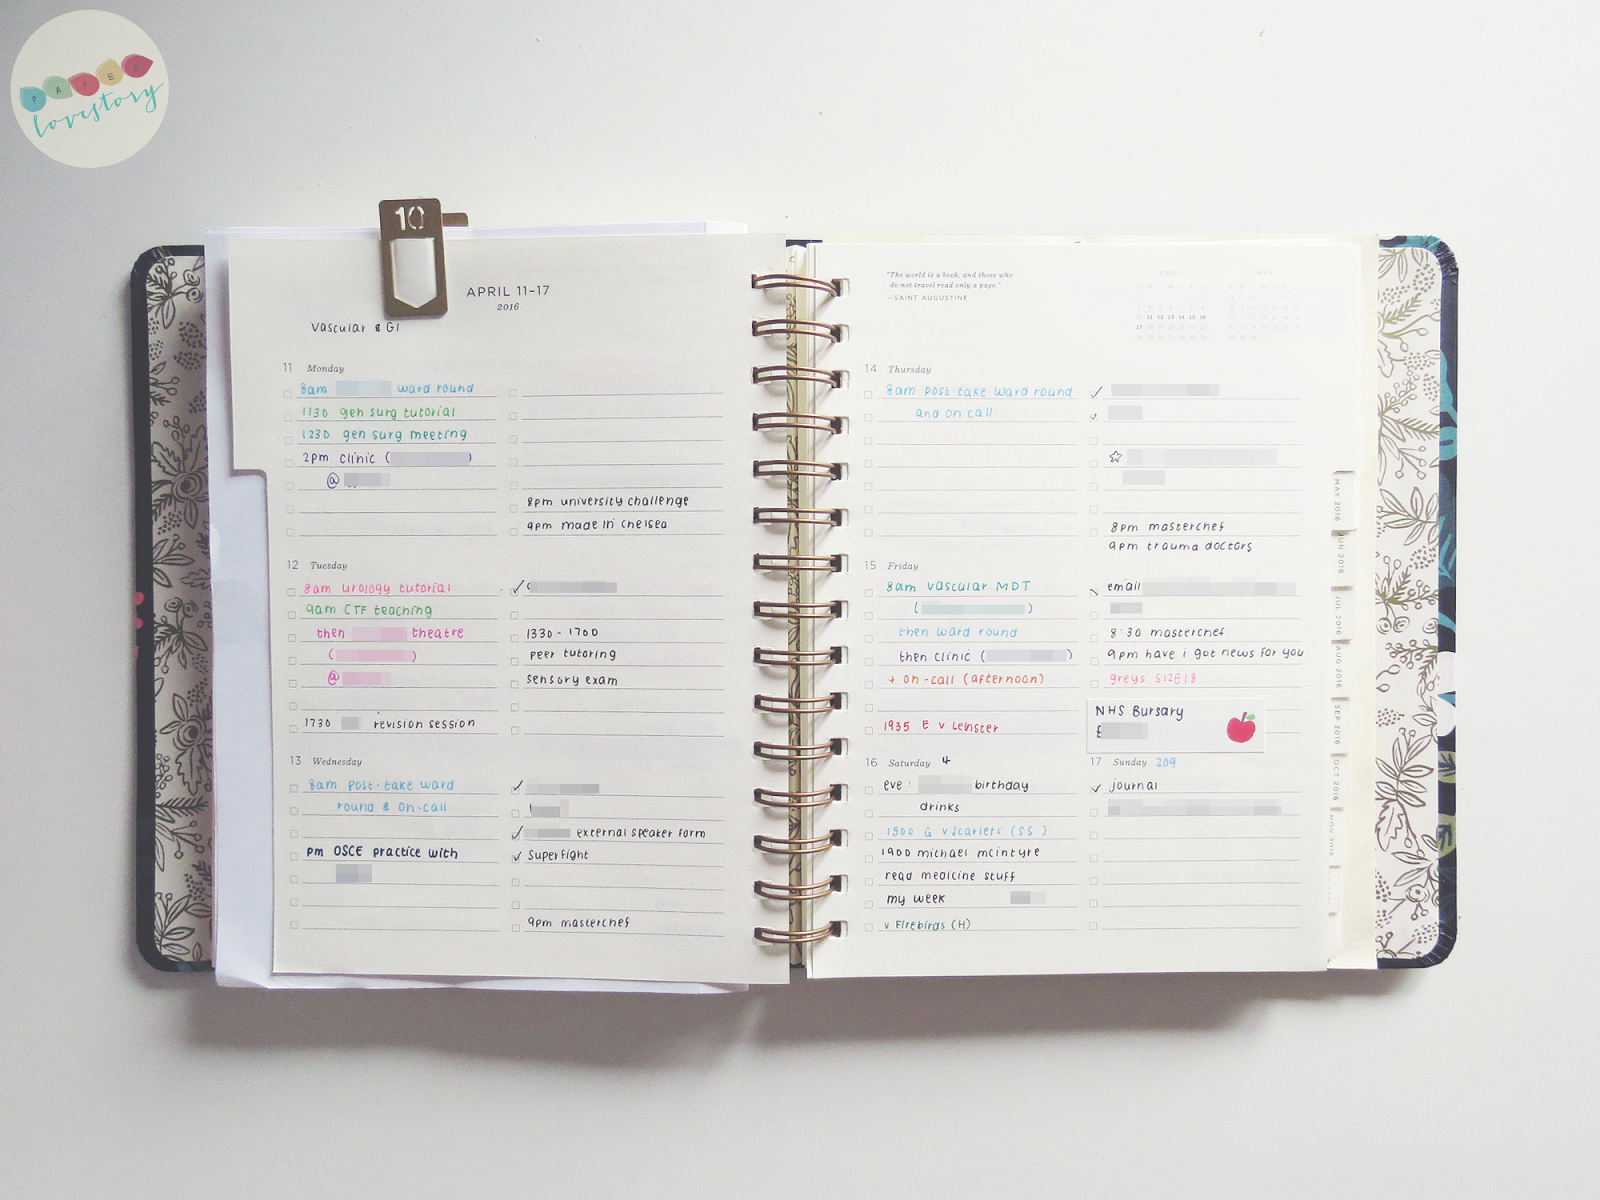 PAPER
lovestory
10
APRIL 11-17
2016
Vascular & GI
11 Monday
8am ward round
1130 gen surg tutorial
1230 gen surg meeting
2pm clinic ( )
@
8pm university challenge
9pm made in chelsea
12 Tuesday
8am urology tutorial
9am CTF teaching
then theatre
( )
@
1730 revision session
1330 - 1700
peer tutoring
sensory exam
13 Wednesday
8am post-take ward
round & on-call
pm OSCE practice with
external speaker form
Superfight
9pm masterchef
"The world is a book, and those who
do not travel read only a page."
—SAINT AUGUSTINE
APRIL
MAY
14 Thursday
8am post take ward round
and on call
8pm masterchef
9pm trauma doctors
15 Friday
8am vascular MDT
( )
then ward round
then clinic ( )
+ on-call (afternoon)
1935 E v Leinster
email
8:30 masterchef
9pm have i got news for you
greys S12E18
NHS Bursary
16 Saturday 4
eve: birthday
drinks
1500 G v scarlets (SS)
1900 michael mcintyre
read medicine stuff
my week
v Firebirds (H)
17 Sunday 209
journal
MAY 2016
JUN 2016
JUL 2016
AUG 2016
SEP 2016
OCT 2016
NOV 2016